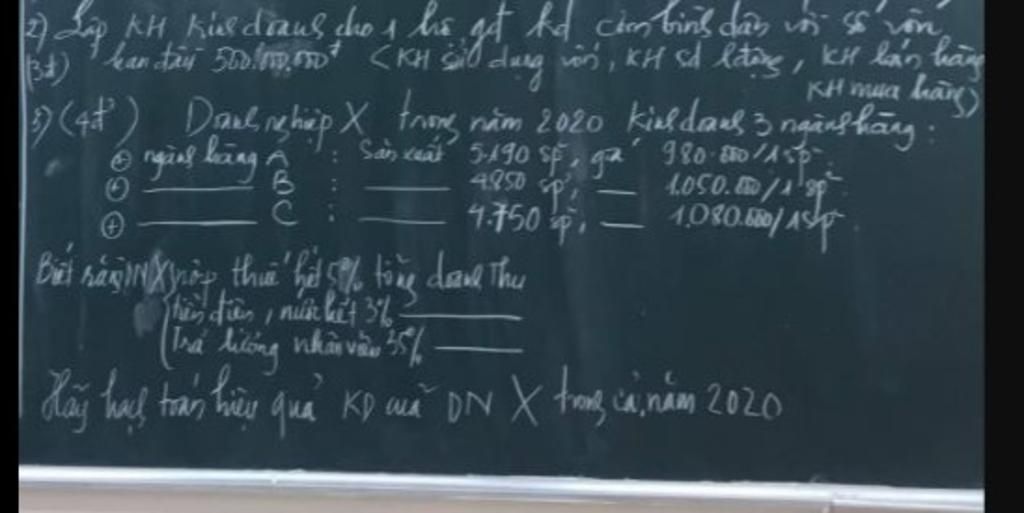 2) Lập KH Kinh doanh cho 1 hộ gđ kd cơm bình dân với số vốn
(3đ) ban đầu 500.000.000đ (KH sử dụng vốn, KH sd lđộng, KH bán hàng
KH mua hàng)
3) (4đ) Doanh nghiệp X trong năm 2020 kinh doanh 3 ngành hàng:
+ ngành hàng A : Sản xuất 5.190 sp, giá 980.000/1sp.
+ ——— B : ——— 4850 sp, — 1.050.000/1sp
+ ——— C : ——— 4.750 sp, — 1.080.000/1sp.
Biết rằng DN X nộp thuế hết 5% tổng doanh thu
tiền điện, nước hết 3% ———
Trả lương nhân viên 35% ———
Hãy hạch toán hiệu quả KD của DN X trong cả năm 2020